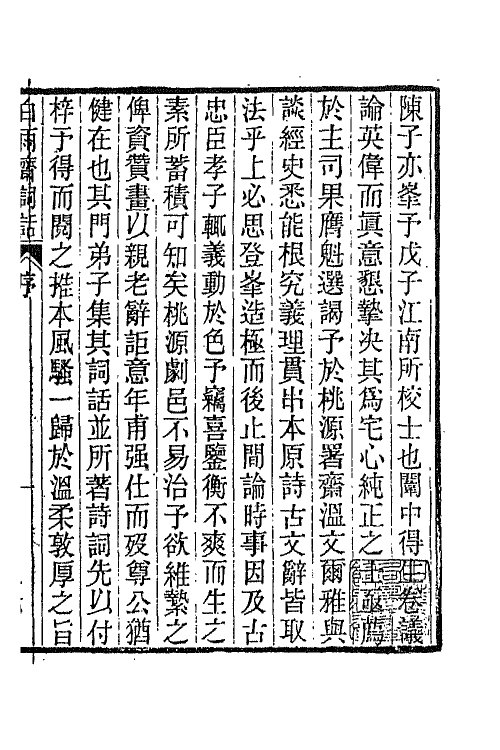 陳子亦峯予戊子江南所校士也闈中得生卷議
論英偉而眞意懇摯決其爲宅心純正之士亟薦
於主司果膺魁選謁予於桃源署齋溫文爾雅與
談經史悉能根究義理貫串本原詩古文辭皆取
法乎上必思登峯造極而後止間論時事因及古
忠臣孝子輒義動於色予竊喜鑒衡不爽而生之
素所蓄積可知矣桃源劇邑不易治予欲維縶之
俾資贊畫以親老辭詎意年甫强仕而歿尊公猶
健在也其門弟子集其詞話並所著詩詞先以付
梓予得而閱之推本風騷一歸於溫柔敦厚之旨
白雨齋詞話 序 一